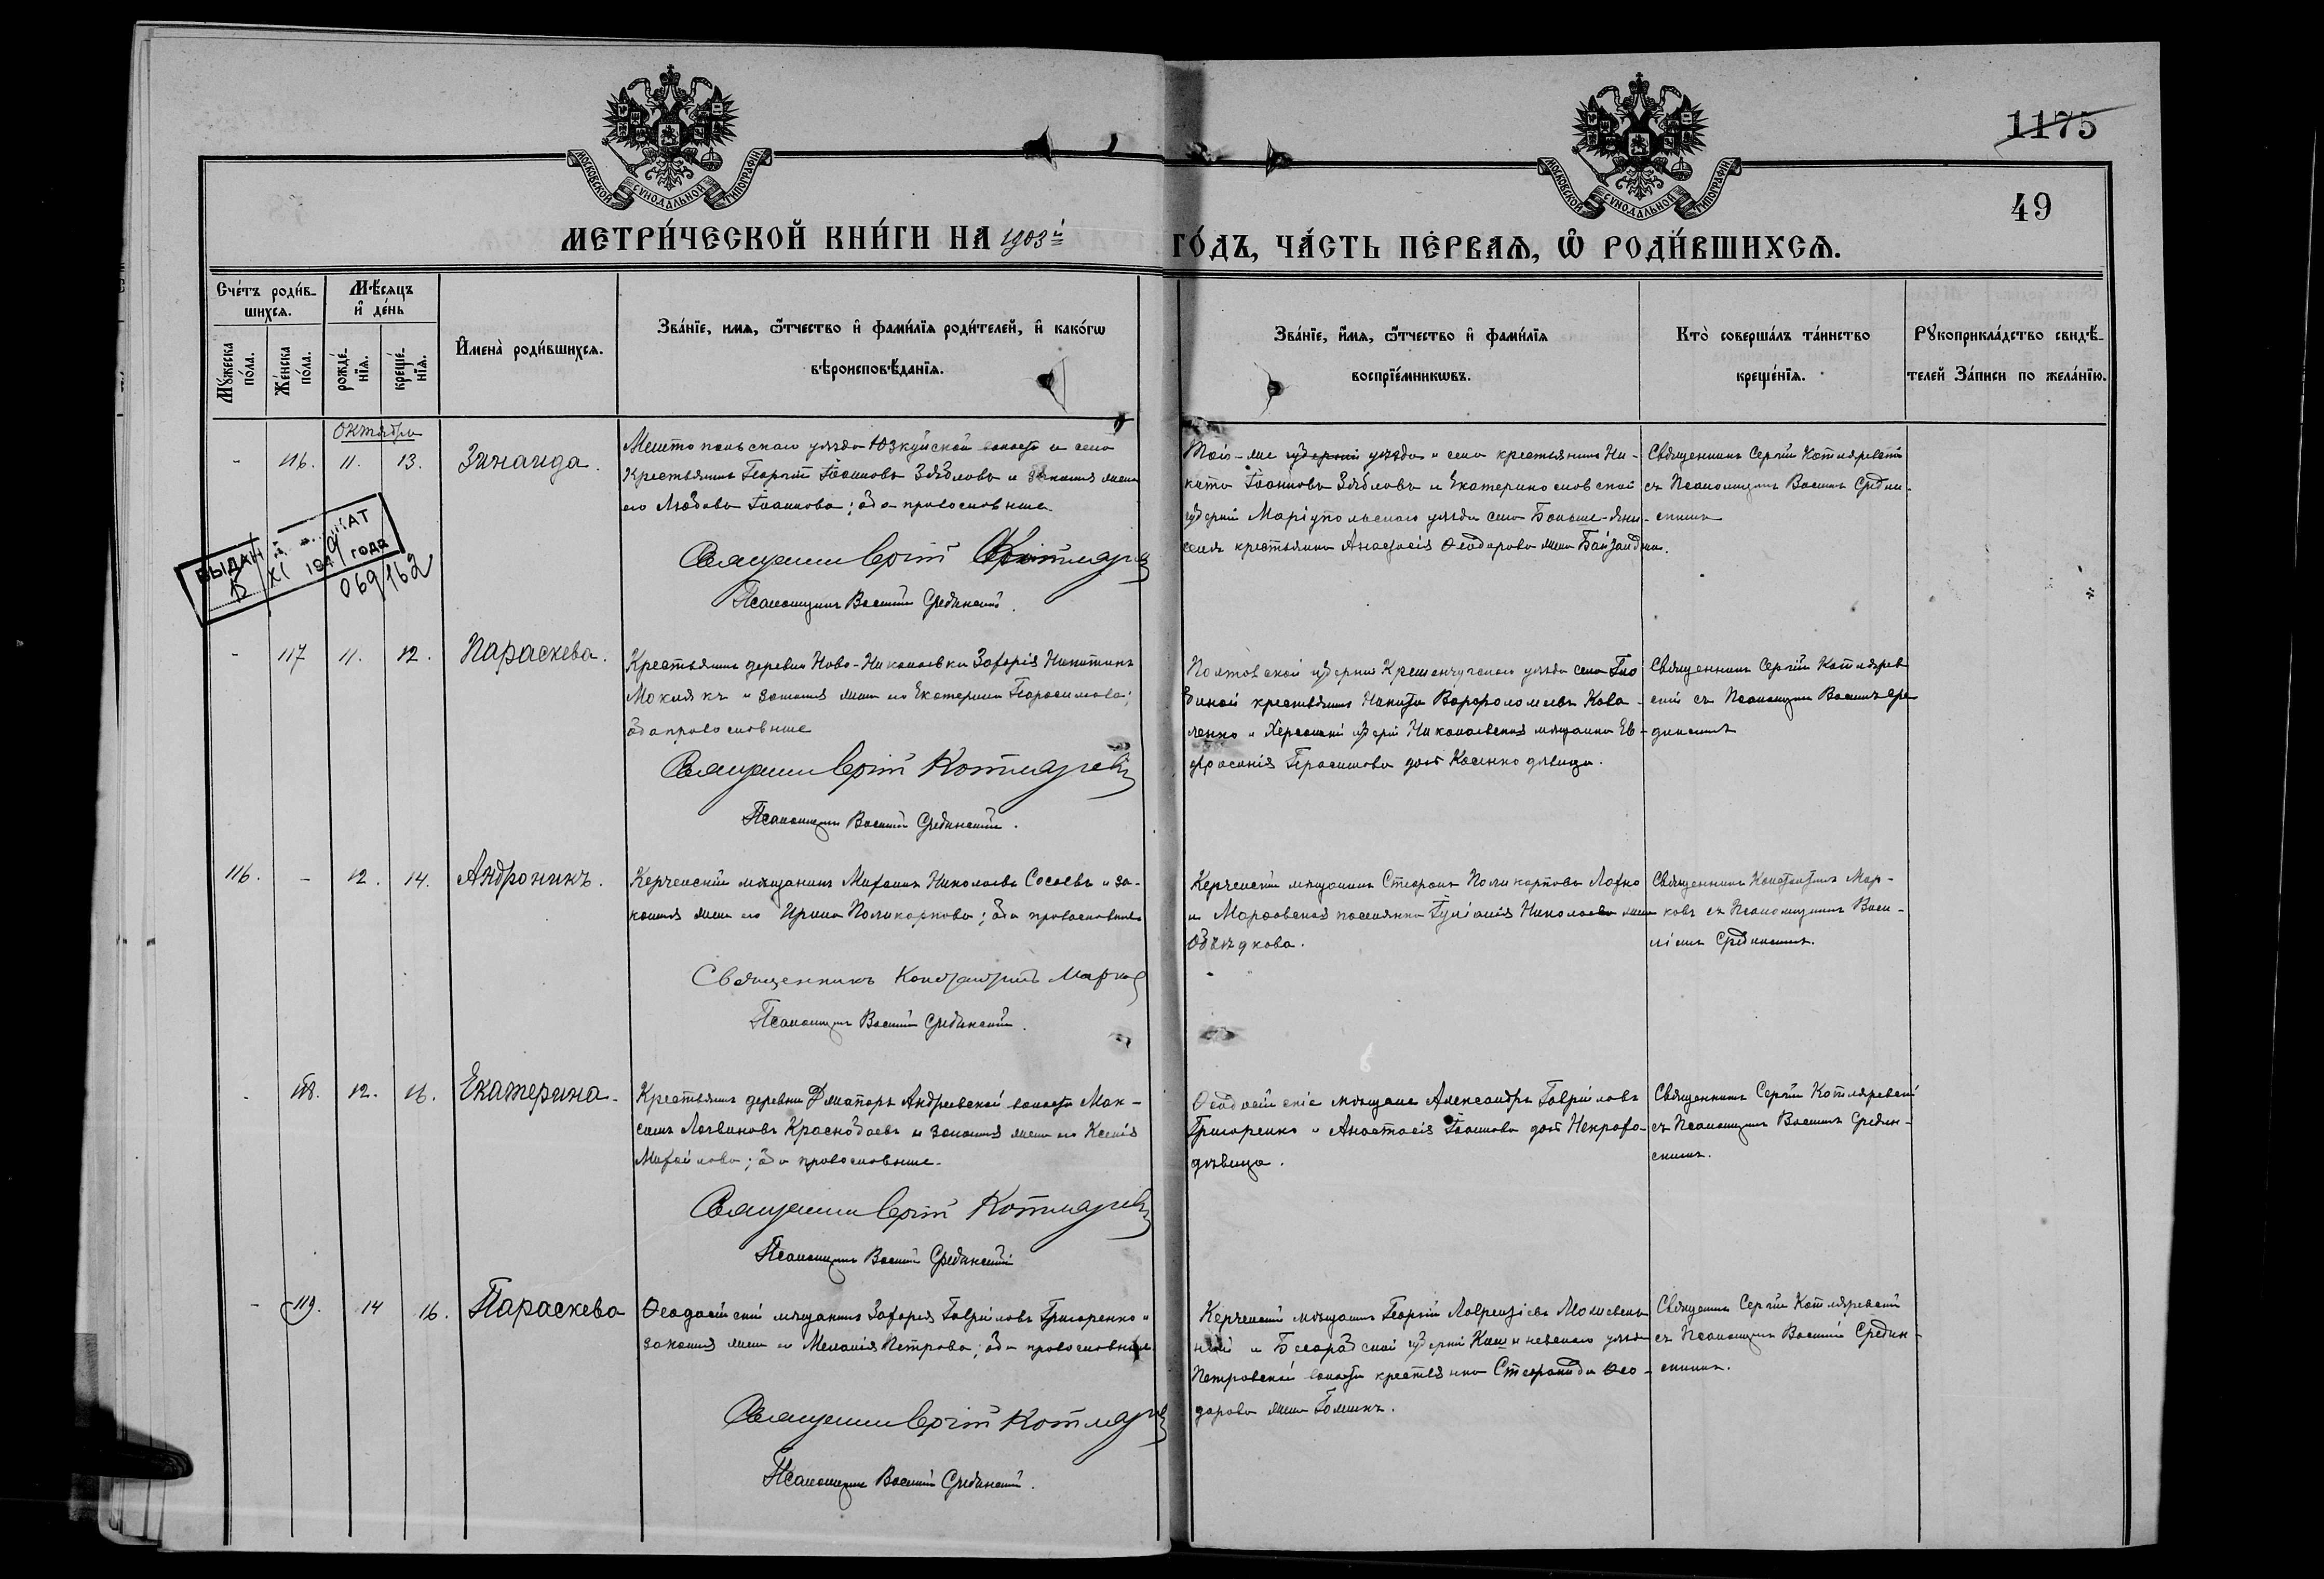 1175
49
МОСКОВСКОЙ СѴНОДАЛЬНОЙ ТИПОГРАФІИ
МОСКОВСКОЙ СѴНОДАЛЬНОЙ ТИПОГРАФІИ
МЕТРИ́ЧЕСКОЙ КНИ́ГИ НА 1903й ГО́ДЪ, ЧА́СТЬ ПЕ́РВАЯ, Ѡ РОДИ́ВШИХСЯ.
Сче́тъ роди́в-
шихся.
Мꙋ́жеска по́ла.
Же́нска по́ла.
Мѣ́сяцъ
и҆ де́нь
рожде́-нїя.
креще́-нїя.
И҆мена̀ роди́вшихся.
Зва́нїе, имя, ѻ҆́тчество и҆ фами́лїя роди́телей, и҆ како́гѡ
вѣроисповѣ́данїя.
Зва́нїе, и҆́мя, ѻ҆́тчество и҆ фами́лїя
воспрїе́мникѡвъ.
Кто̀ соверша́лъ та́инство
креще́нїя.
Рꙋкоприкла́дство свидѣ́-
телей За́писи по жела́нїю.
Октября
- 116. 11. 13. Зинаида.
Мелитопольскаго уѣзда Юзкуйской волости и села
Крестьянинъ Георгій Іоанновъ Зябловъ и законная жена
его Любовь Іоаннова; оба православные
Священникъ Сергій Котляревскій
Псаломщикъ Василій Срединскій.
Той-же губерніи уѣзда и села крестьянинъ Ни-
кита Іоанновъ Зябловъ и Екатеринославской
губерніи Маріупольскаго уѣзда села Больше-Яни-
соля крестьянка Анастасія Ѳеодорова жена
Священникъ Сергій Котляревскій
съ Псаломщикомъ Василіемъ Средин-
скимъ
ВЫДАН
XI 1949 года
069162
- 117 11. 12. Параскева.
Крестьянинъ деревни Ново-Николаевки Захарія Никитинъ
Моклякъ и законная жена его Екатерина Герасимова;
оба православные
Священникъ Сергій Котляревскій
Псаломщикъ Василій Срединскій.
Полтавской губерніи Кременчугскаго уѣзда села Гло
биной крестьянинъ Никита Варфоломеевъ Кова-
ленко и Херсонской губерніи Николаевская мѣщанка Ев-
фросинія Герасимова дочь Косенко дѣвица.
Священникъ Сергій Котлярев
скій съ Псаломщикомъ Василіемъ Сре
динскимъ
116. - 12. 14. Андроникъ.
Керченскій мѣщанинъ Михаилъ Николаевъ Сосаевъ и за-
конная жена его Ирина Поликарпова; оба православные
Священникъ Константинъ Марков
Псаломщикъ Василій Срединскій.
Керченскій мѣщанинъ Стефанъ Поликарповъ Лахно
и Марфовская поселянка Іуліанія Николаева жена
Объѣдкова.
Священникъ Константинъ Мар-
ковъ съ Псаломщикомъ Васи-
ліемъ Срединскимъ.
- 118. 12. 16. Екатерина.
Крестьянинъ деревни Андреевской волости Мак-
симъ Логвиновъ Краснобаевъ и законная жена его Ксенія
Михайлова; оба православные.
Священникъ Сергій Котляревскій
Псаломщикъ Василій Срединскій
Ѳеодосійскіе мѣщане Александръ Гавріиловъ
Григоренко и Анастасія Іоаннова дочь
дѣвица.
Священникъ Сергій Котляревскій
съ Псаломщикомъ Василіемъ Средин-
скимъ.
- 119. 14 16. Параскева
Ѳеодосійскій мѣщанинъ Захарія Гавріиловъ Григоренко и
законная жена его Меланія Петрова; оба православные
Священникъ Сергій Котляревскій
Псаломщикъ Василій Срединскій.
Керченскій мѣщанинъ Георгій Лаврентіевъ
и Бессарабской губерніи Кишиневскаго уѣзда
Петровской волости крестьянка Стефанида Ѳео-
дорова жена
Священникъ Сергій Котляревскій
съ Псаломщикомъ Василіемъ Средин-
скимъ.